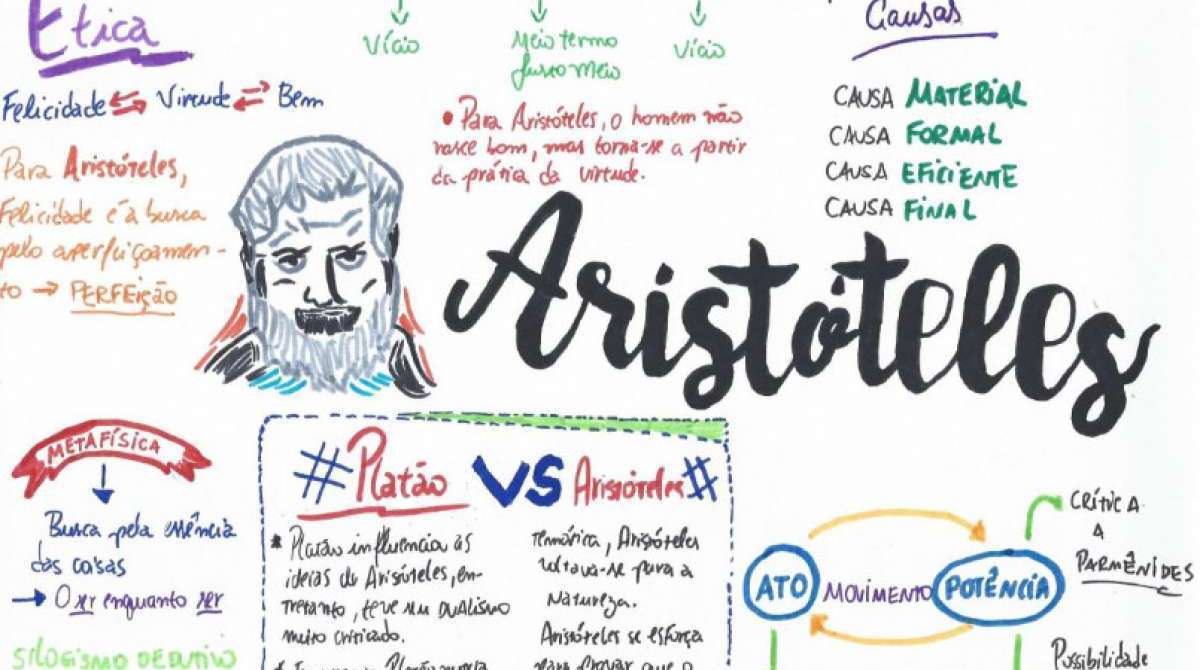 Ética
Felicidade Virtude Bem
Para Aristóteles,
Felicidade é a busca
pelo aperfeiçoamen-
to → PERFEIÇÃO
Vício
Meio termo
Justo Meio
Vício
• Para Aristóteles, o homem não
nasce bom, mas torna-se a partir
da prática da virtude.
Causas
CAUSA MATERIAL
CAUSA FORMAL
CAUSA EFICIENTE
CAUSA FINAL
Aristóteles
METAFÍSICA
Busca pela essência
das coisas
→ O ser enquanto ser
SILOGISMO DEDUTIVO
#Platão VS Aristóteles#
* Platão influencia as
ideias de Aristóteles, en-
tretanto, teve seu DUALISMO
muito criticado.
temática, Aristóteles
voltava-se para a
Natureza.
Aristóteles se esforça
para provar que o
ATO MOVIMENTO POTÊNCIA
CRÍTICA
A
PARMÊNIDES
Possibilidade